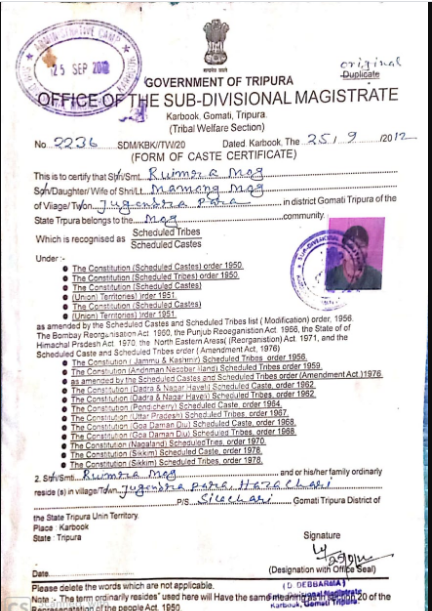 ADMINISTRATIVE CAMP
25 SEP 2012
original
Duplicate
GOVERNMENT OF TRIPURA
OFFICE OF THE SUB-DIVISIONAL MAGISTRATE
Karbook, Gomati, Tripura.
(Tribal Welfare Section)
No. 2236 SDM/KBK/TW/20 Dated. Karbook, The 25/9/2012
(FORM OF CASTE CERTIFICATE)
This is to certify that Sri/Smt. Ruimra Mog
Son/Daughter/ Wife of Shri/Lt. Mamong Mog
of Village/ Town Jugendra Para in district Gomati Tripura of the
State Tripura belongs to the Mog community.
Which is recognised as Scheduled Tribes
Scheduled Castes
Under :-
The Constitution (Scheduled Castes) order 1950.
The Constitution (Scheduled Tribes) order 1950.
The Constitution (Scheduled Castes)
(Union) Territories) order 1951.
The Constitution (Scheduled Castes)
(Union) Territories) order 1951.
as amended by the Scheduled Castes and Scheduled Tribes list ( Modification) order, 1956.
The Bombay Reorganisation Act 1960, the Punjub Reoeganistion Act. 1966, the State of of
Himachal Pradesh Act. 1970, the North Eastern Areas( (Reorganisation) Act. 1971, and the
Scheduled Caste and Scheduled Tribes order ( Amendment Act, 1976)
The Constitution ( Jammu & Kashmir) Scheduled Tribes order, 1956.
The Constitution (Andnman Necober Iland) Scheduled Tribes order 1959.
as amended by the Scheduled Castes and Scheduled Tribes order (Amendment Act.)1976.
The Constitution (Dadra & Nagar Haveli) Scheduled Caste, order 1962.
The Constitution (Dadra & Nagar Haveli) Scheduled Tribes, order 1962.
The Constitution (Pondicherry) Scheduled Caste 1964.
The Constitution (Uttar Pradesh) Scheduled Tribes, order 1967.
The Constitution (Goa Daman Diu) Scheduled Caste, order 1968.
The Constitution (Goa Daman Diu) Scheduled Tribes, order 1968.
The Constitution (Nagaland) ScheduledTries, order 1970.
The Constitution (Sikkim) Scheduled Caste, order 1978.
The Constitution (Sikkim) Scheduled Tribes, order 1978.
2. Shri/Smti Ruimra Mog and or his/her family ordinarily
reside (s) in village/Town Jugendra para,
P/S Silachari Gomati Tripura District of
the State Tripura Unin Territory.
Place : Karbook
State : Tripura
Signature
(Designation with Office Seal)
Date
(D. DEBBARMA)
Please delete the words which are not applicable.
Sub-Divisional Magistrate
Karbook, Gomati Tripura.
Note :- The term ordinarily resides" used here will Have the same meaning as in section 20 of the
Representation of the people Act, 1950